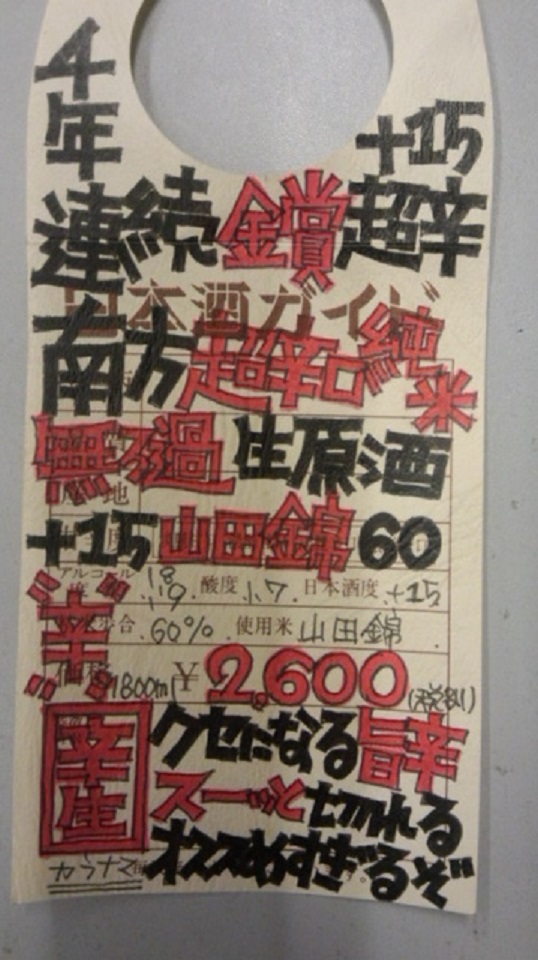 4年 +15
連続金賞超辛
日本酒ガイド
南方超辛口純米
無ろ過生原酒
地
+15山田錦60
アルコール度 18 19 酸度 1.7 日本酒度 +15
辛
歩合 60% 使用米 山田錦
価格 1800ml ¥2,600(税別)
辛生 クセになる旨辛
スーッと切れる
カラナマ オススめすぎるぞ